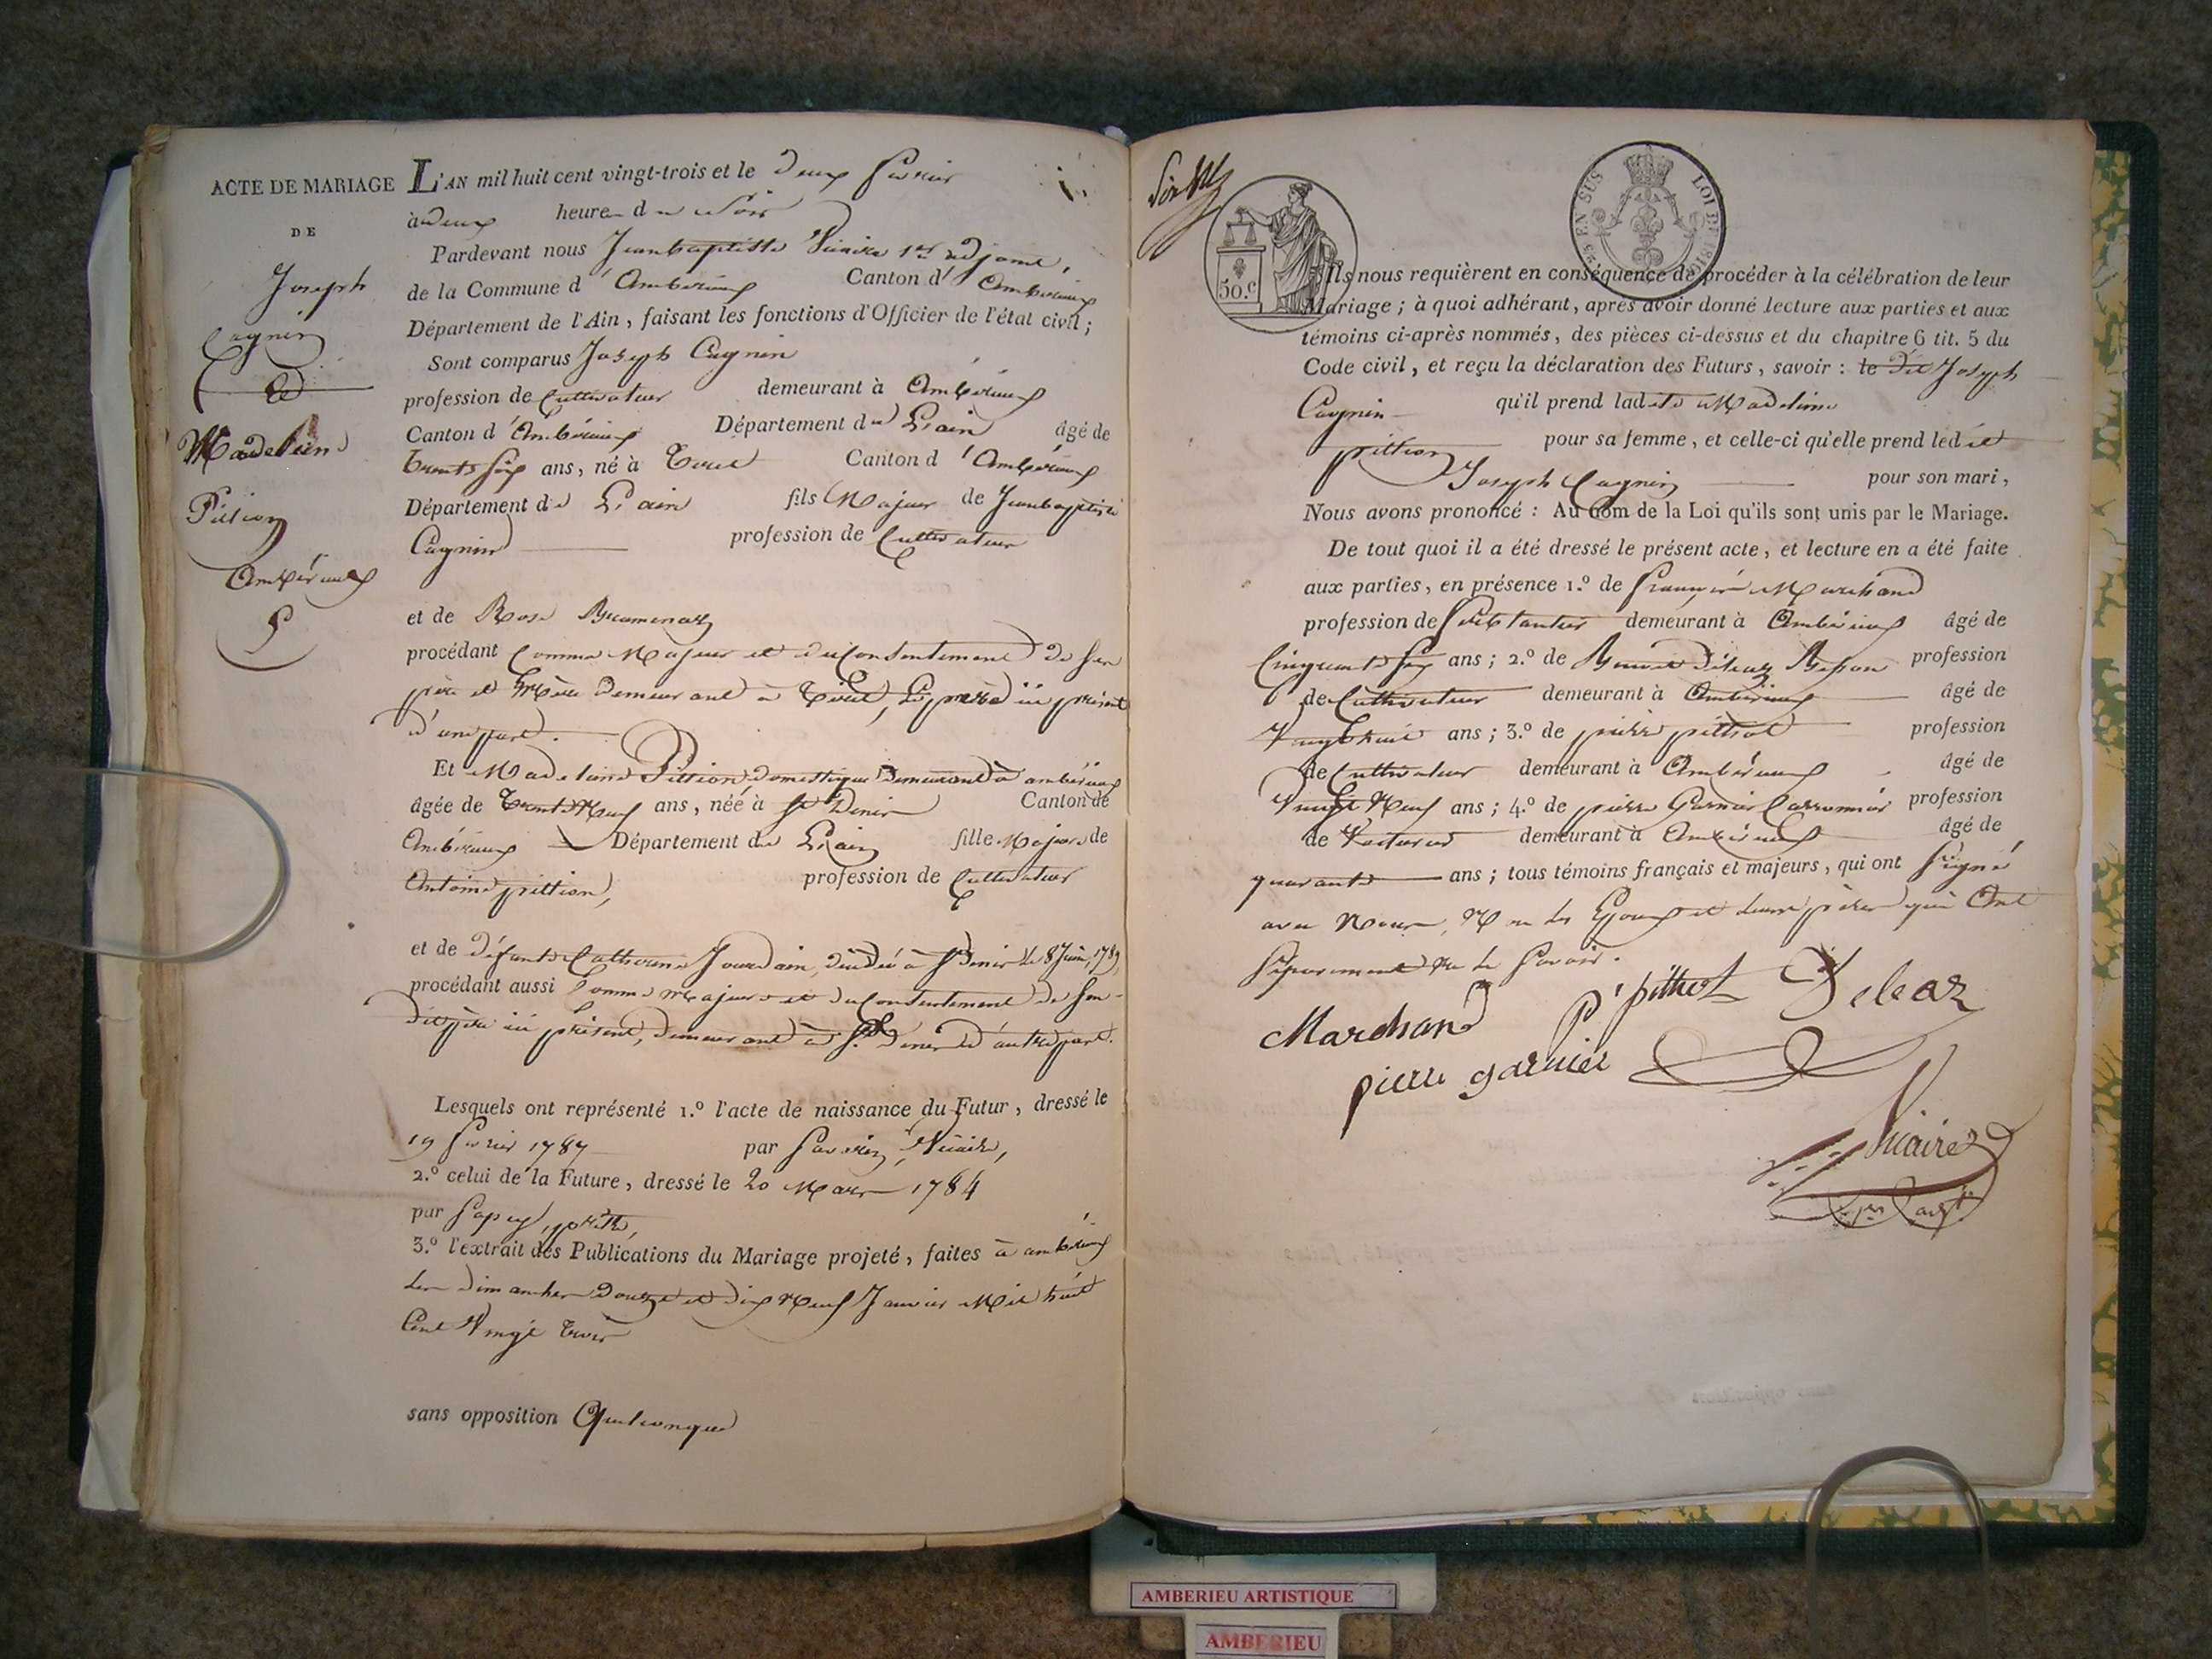 ACTE DE MARIAGE
DE
Joseph
Cagnin
&
Madeleine
Pittion
Ambérieux
L'AN mil huit cent vingt-trois et le deux février
à deux heures du soir
Pardevant nous Jeanbaptiste Vicaire 1er adjoint,
de la Commune d'Ambérieux Canton d'Ambérieux
Département de l'Ain, faisant les fonctions d'Officier de l'état civil;
Sont comparus Joseph Cagnin
profession de Cultivateur demeurant à Ambérieux
Canton d'Ambérieux Département de L'ain âgé de
trente six ans, né à Torcieu Canton d'Ambérieux
Département de L'ain fils Majeur de Jeanbaptiste
Cagnin profession de Cultivateur
et de Rose
procédant Comme Majeur et du Consentement de Son
père et Mère demeurant à Le père ici présent
d'unepart.
Et Madeleine Pittion domestique demeurant à ambérieux
âgée de trente Neuf ans, née à St Denis Canton de
Ambérieux Département de L'ain fille Majeure de
Antoine pittion, profession de Cultivateur
et de défunte Catherine Jourdain, décédée à St Denis le 8 Juin 1789,
procédant aussi Comme majeure et du Consentement de Son
dit père ici présent, demeurant à St Denis d'autrepart.
Lesquels ont représenté 1.º l'acte de naissance du Futur, dressé le
19 février 1787 par Vicaire,
2.º celui de la Future, dressé le 20 Mars 1784
par prêtre,
3.º l'extrait des Publications du Mariage projeté, faites à ambérieux
les dimanches Douze et dix Neuf Janvier Mil huit
Cent Vingt trois
sans opposition Quelconque
50.C
EN SUS
LOI DE
Ils nous requièrent en conséquence de procéder à la célébration de leur
Mariage; à quoi adhérant, après avoir donné lecture aux parties et aux
témoins ci-après nommés, des pièces ci-dessus et du chapitre 6 tit. 5 du
Code civil, et reçu la déclaration des Futurs, savoir: le dit Joseph
Cagnin qu'il prend ladite Madeleine
pittion pour sa femme, et celle-ci qu'elle prend ledit
Joseph Cagnin pour son mari,
Nous avons prononcé: Au nom de la Loi qu'ils sont unis par le Mariage.
De tout quoi il a été dressé le présent acte, et lecture en a été faite
aux parties, en présence 1.º de François Marchand
profession de demeurant à Ambérieux âgé de
Cinquante Six ans; 2.º de Benoit Deleaz profession
de Cultivateur demeurant à Ambérieux âgé de
Vingt huit ans; 3.º de pierre pittiot profession
de Cultivateur demeurant à Ambérieux âgé de
Vingt Neuf ans; 4.º de pierre Garnier profession
de Voiturier demeurant à Ambérieux âgé de
quarante ans; tous témoins français et majeurs, qui ont Signé
avec Nous, Non les Epoux et leurs pères qui Ont
Séparément Ne le Savoir.
Marchand P. pittiot Deleaz
pierre garnier
Vicaire